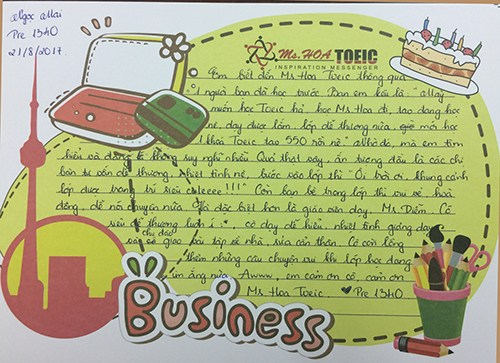 Ngọc Mai
Pre 1340
21/8/2017.
Ms. HOA TOEIC
INSPIRATION MESSENGER
Em biết đến Ms Hoa Toeic thông qua
1 người bạn đã học trước. Bạn em kêu là: "
muốn học Toeic hả, học Ms Hoa đi, tao đang học
nè, dạy được lắm, lớp dễ thương nữa, giờ mới học
khoá Toeic tao 550 rồi nè" , mà em tìm
hiểu và đăng kí không suy nghĩ nhiều. Quả thật vậy, ấn tượng đầu là các chị
tư vấn dễ thương, nhiệt tình nè, bước vào lớp thì "Ôi trời ơi, khung cảnh
lớp được trang trí siêu !!!!" Còn bạn bè trong lớp thì vui vẻ, hoà
đồng, dễ nói chuyện nữa. Và đặc biệt hơn là giáo viên dạy. Ms. Diễm. Cô
siêu dễ thương luôn í, cô dạy dễ hiểu, nhiệt tình giảng dạy,
chu đáo
giao bài tập về nhà, sửa cẩn thận. Cô còn lồng
thêm những câu chuyện vui khi lớp học đang
nữa. Awww, em cảm ơn cô, cảm ơn
Ms Hoa Toeic. ♥ Pre 1340
Business